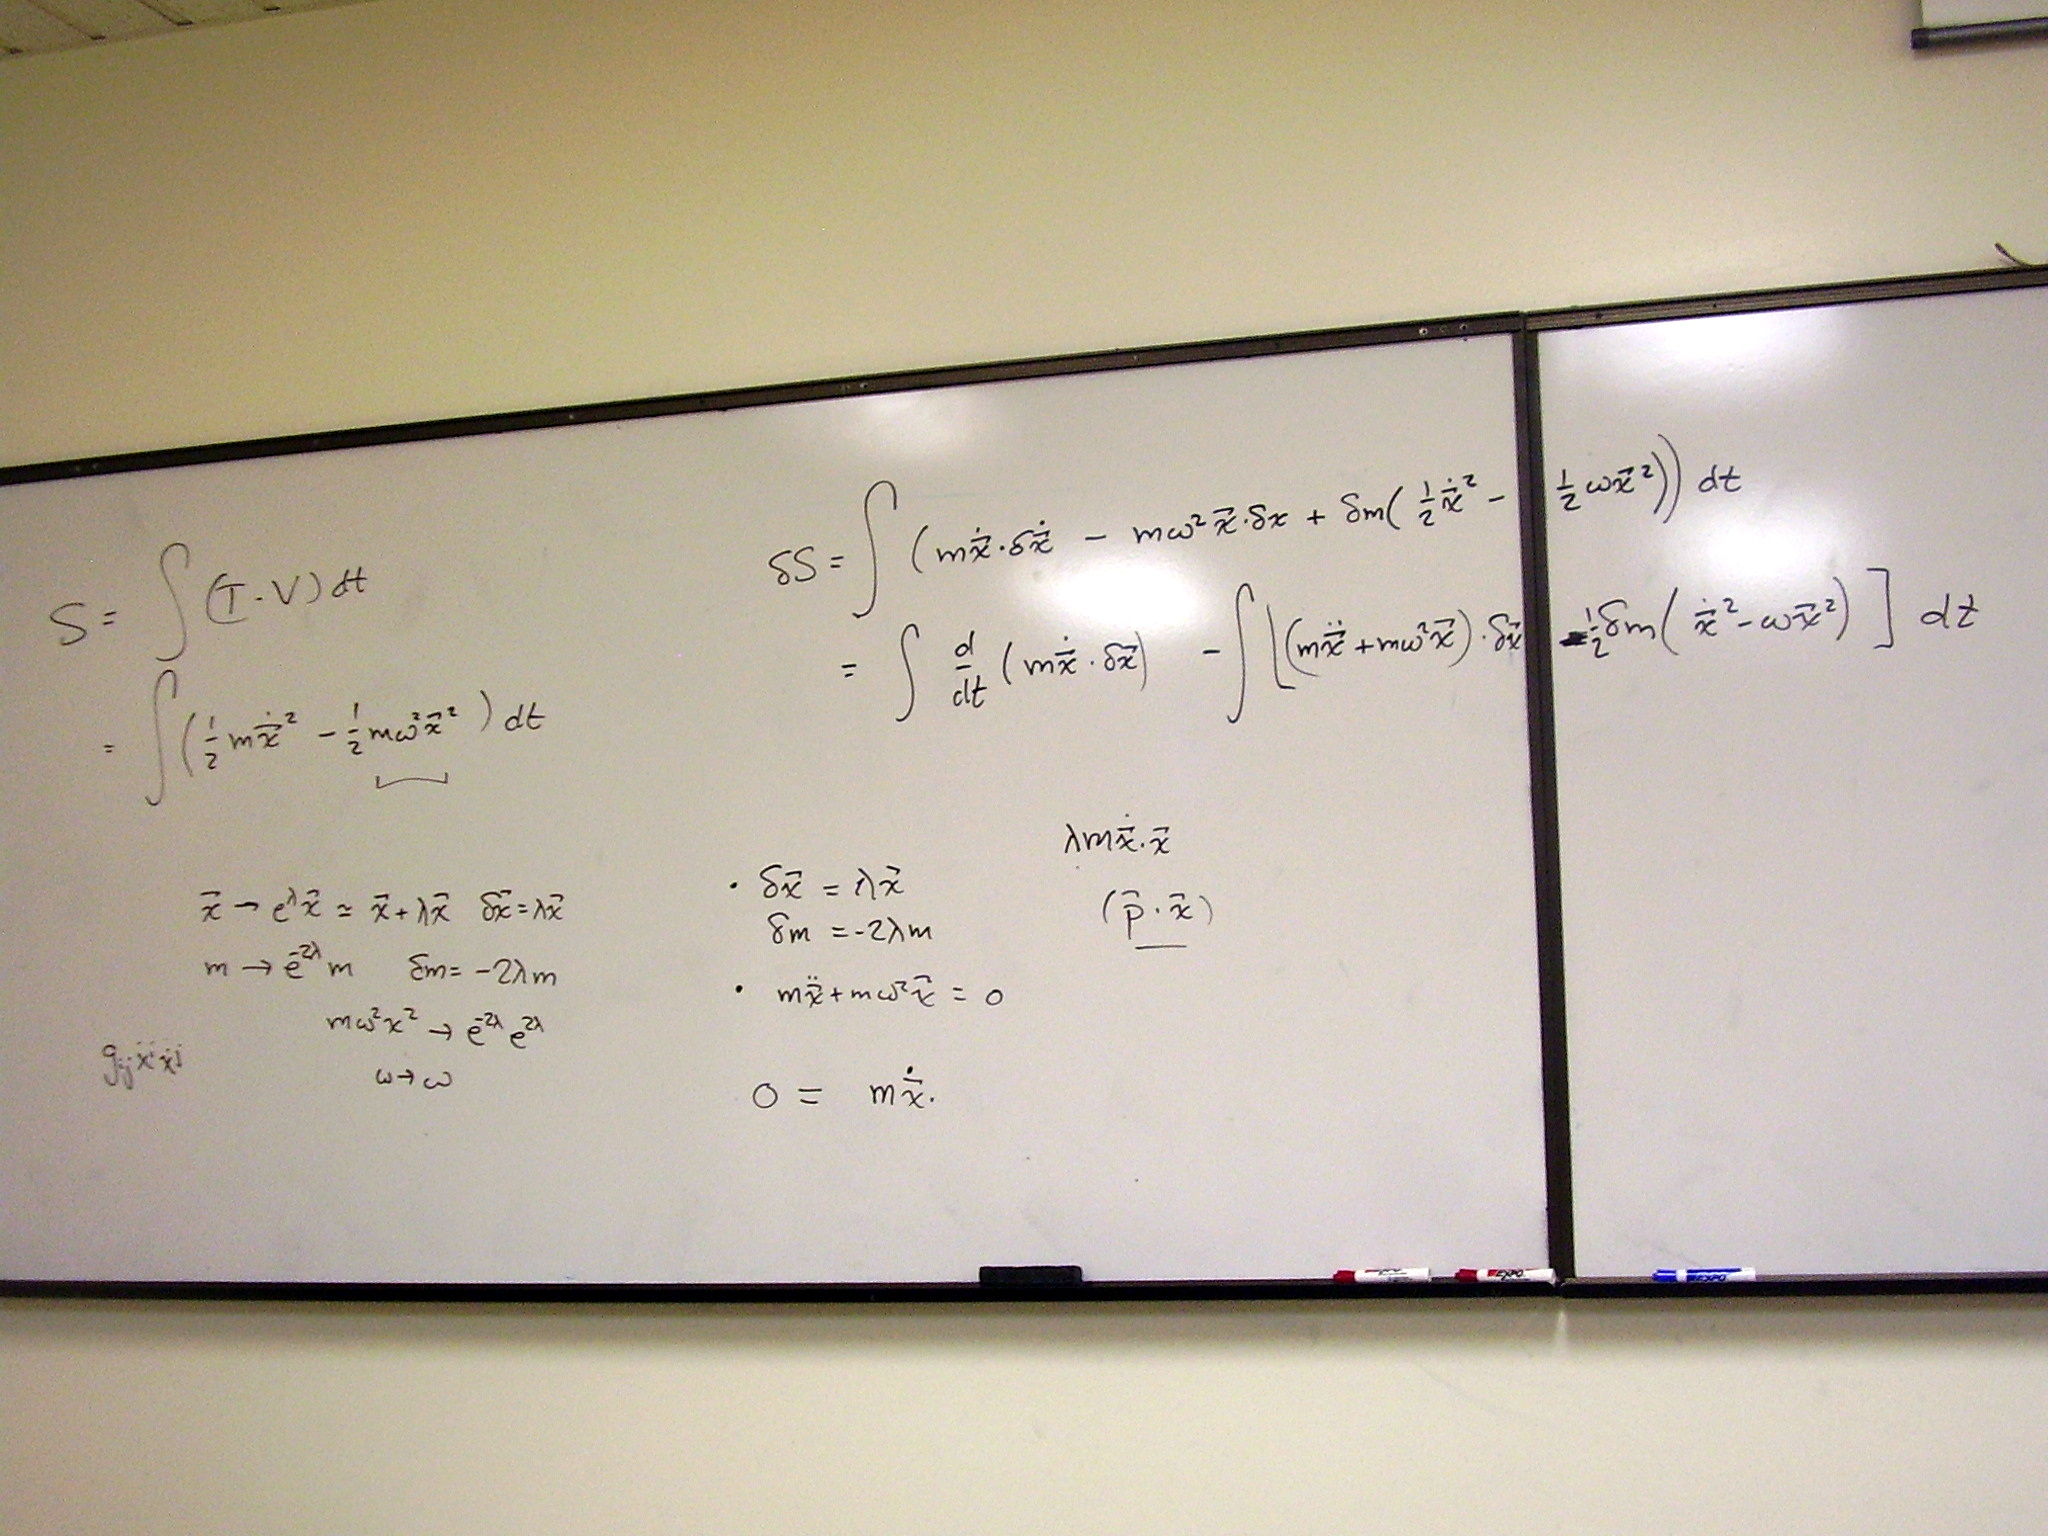 S = ∫ (T - V) dt
= ∫ (½ m ẋ⃗² - ½ mω²x⃗²) dt
x⃗ → e^λ x⃗ ≃ x⃗ + λx⃗   δx⃗ = λx⃗
m → e^-2λ m   δm = -2λm
mω²x² → e^-2λ e^2λ
ω → ω
g_ij ẋ^i ẋ^j
δS = ∫ (mẋ⃗·δẋ⃗ - mω²x⃗·δx + δm(½ẋ⃗² - ½ωx⃗²)) dt
= ∫ d/dt (mẋ⃗·δx⃗) - ∫ [(mẍ⃗ + mω²x⃗)·δx⃗ - ½δm(ẋ⃗² - ωx⃗²)] dt
λmẋ⃗·x⃗
(p⃗·x⃗)
• δx⃗ = λx⃗
δm = -2λm
• mẍ⃗ + mω²x⃗ = 0
0 = mẋ⃗·
EXPO
EXPO